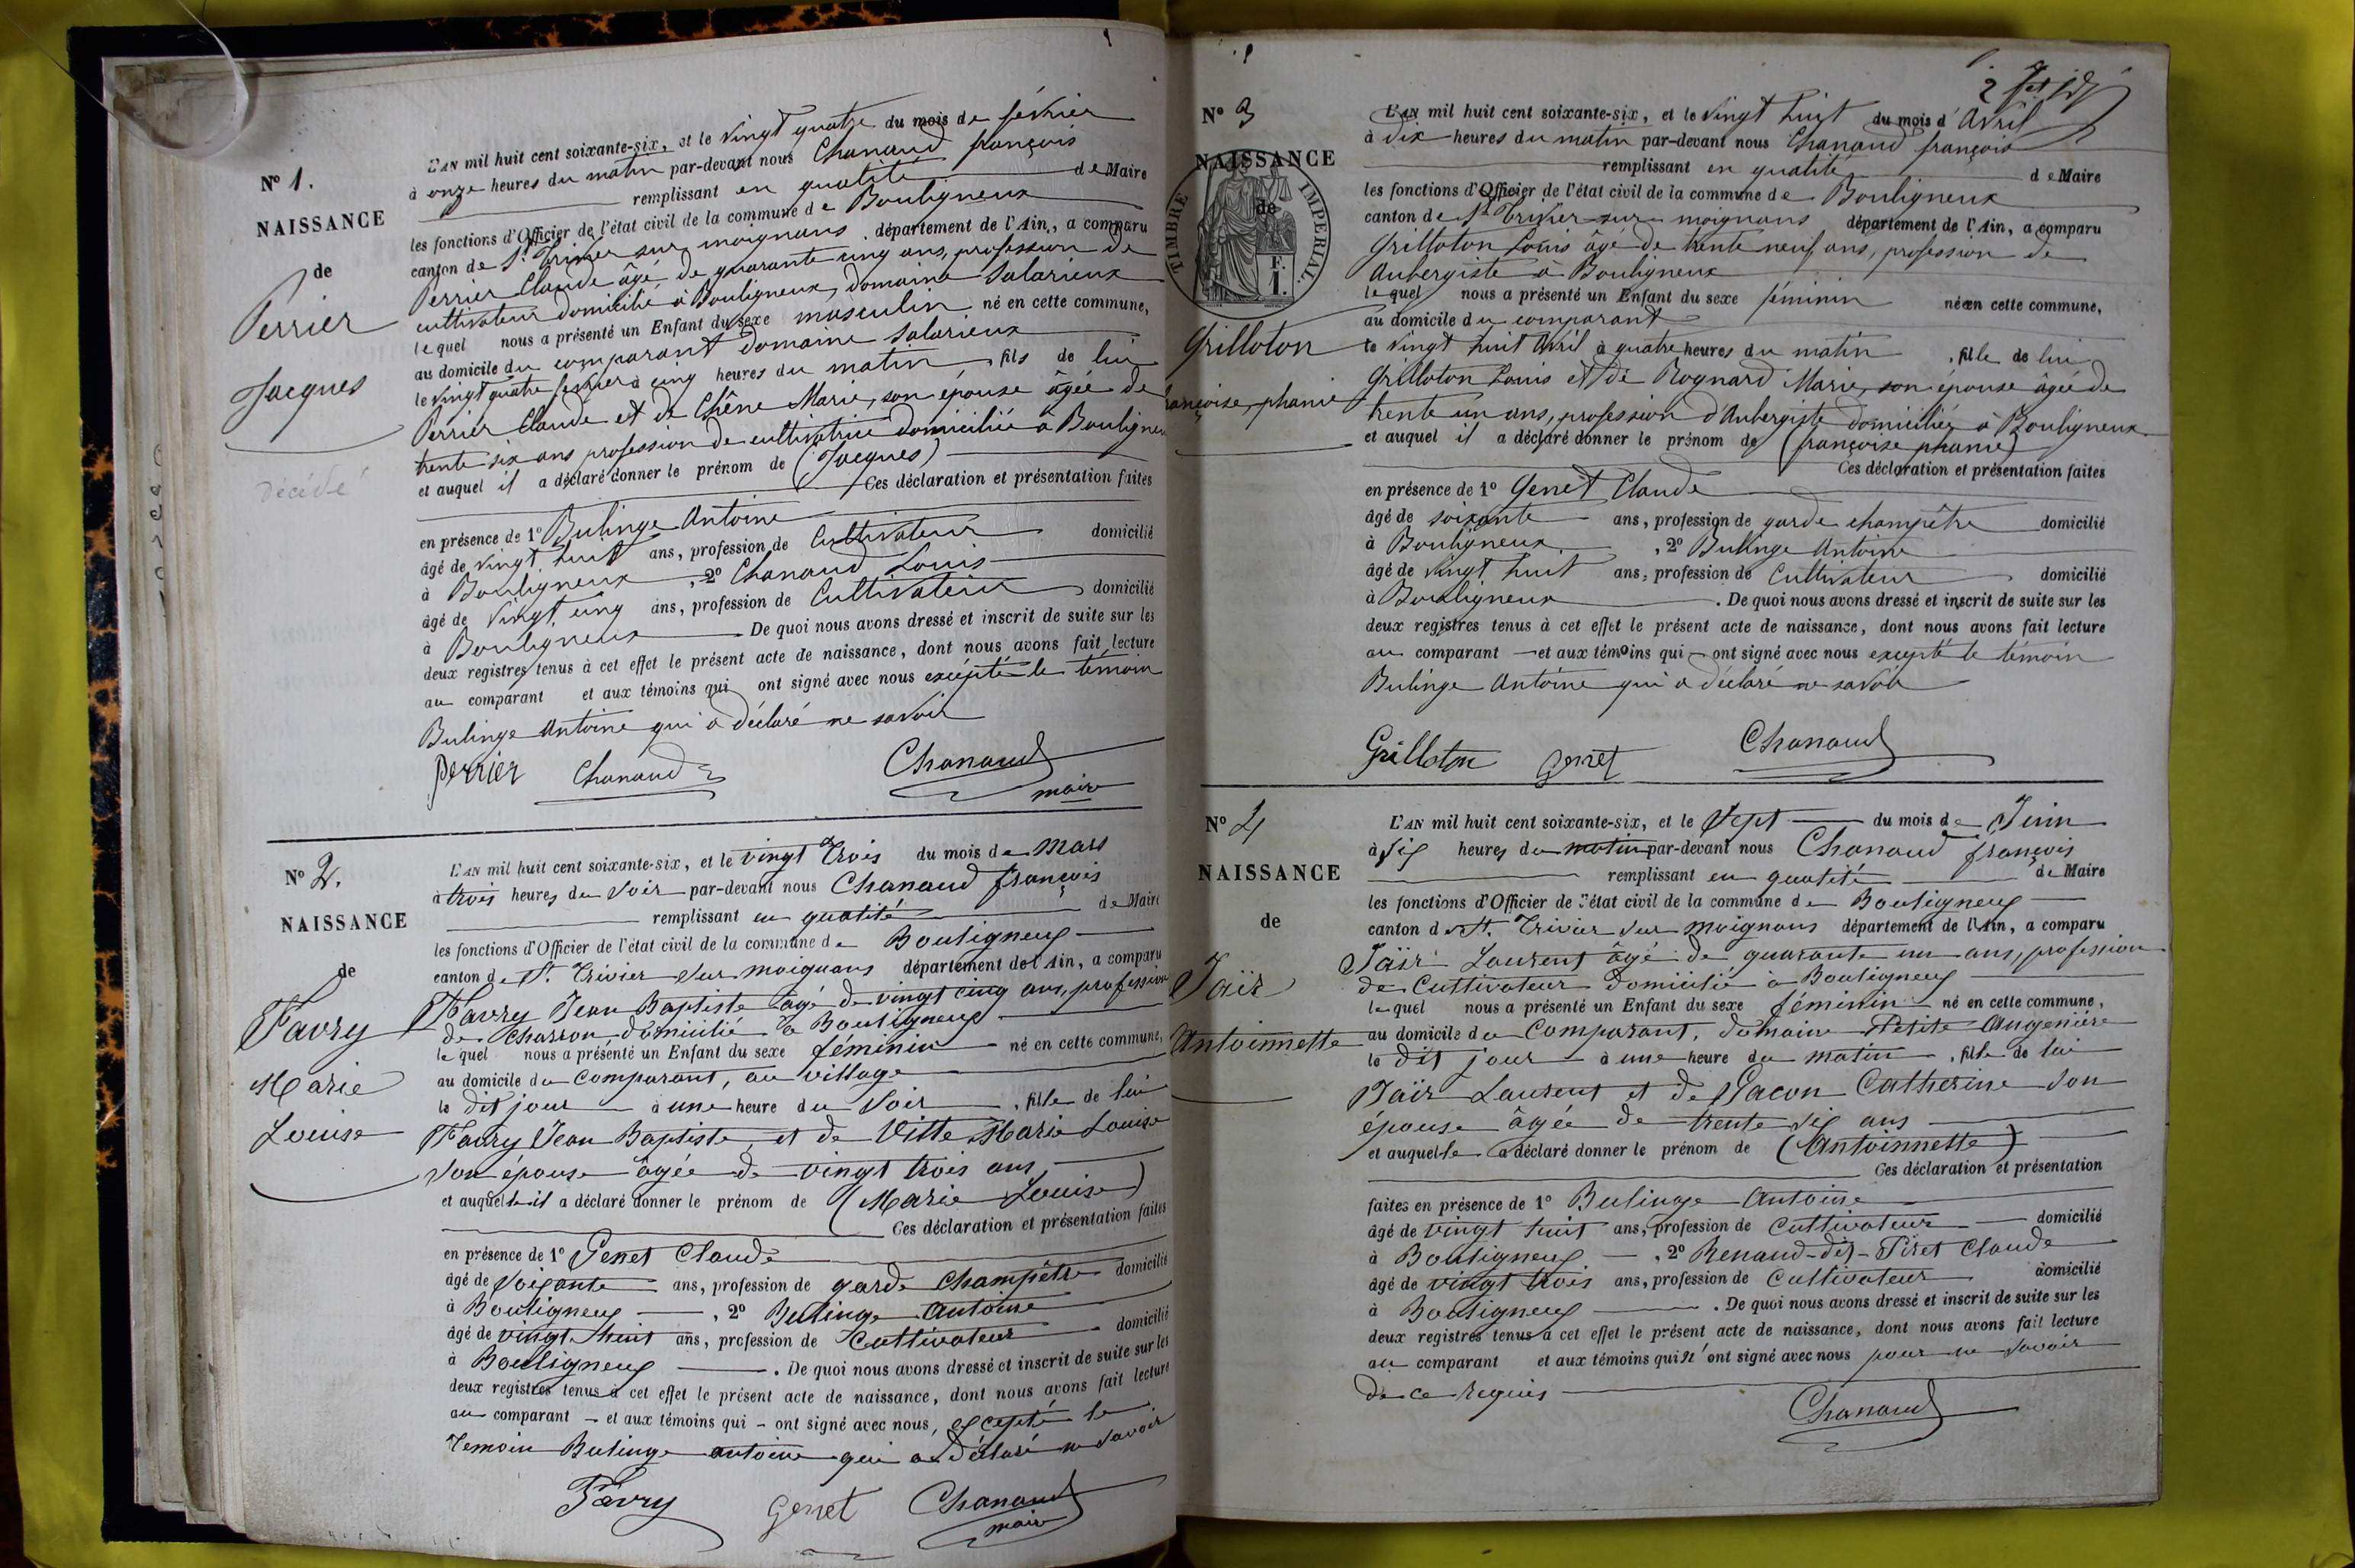 N° 1.
NAISSANCE
de
Perrier
Jacques
Décédé
L'AN mil huit cent soixante-six, et le vingt quatre du mois de février
à onze heures du matin par-devant nous Chanaud françois
remplissant en qualité de Maire
les fonctions d'Officier de l'état civil de la commune de Bouligneux
canton de St. Trivier sur moignans département de l'Ain, a comparu
Perrier Claude âgé de quarante cinq ans, profession de
cultivateur domicilié à Bouligneux, domaine Salarieux
lequel nous a présenté un Enfant du sexe masculin né en cette commune,
au domicile du comparant domaine Salarieux
le vingt quatre février à cinq heures du matin fils de lui
Perrier Claude et de Chêne Marie, son épouse âgée de
trente six ans profession de cultivatrice domiciliée à Bouligneux
et auquel il a déclaré donner le prénom de (Jacques)
Ces déclaration et présentation faites
en présence de 1° Bulinge Antoine
âgé de vingt huit ans, profession de Cultivateur domicilié
à Bouligneux, 2° Chanaud Louis
âgé de vingt cinq ans, profession de Cultivateur domicilié
à Bouligneux De quoi nous avons dressé et inscrit de suite sur les
deux registres tenus à cet effet le présent acte de naissance, dont nous avons fait lecture
au comparant et aux témoins qui ont signé avec nous excépté le témoin
Bulinge Antoine qui a déclaré ne savoir
Perrier Chanaud Chanaud
maire
N° 2.
NAISSANCE
de
Favry
Marie
Louise
L'AN mil huit cent soixante-six, et le vingt trois du mois de Mars
à trois heures du soir par-devant nous Chanaud françois
remplissant en qualité de Maire
les fonctions d'Officier de l'état civil de la commune de Bouligneux
canton de St. Trivier sur moignans département de l'Ain, a comparu
Favry Jean Baptiste âgé de vingt cinq ans, profession
de Charron domicilié à Bouligneux
lequel nous a présenté un Enfant du sexe féminin né en cette commune,
au domicile du Comparant, au village
le dit jour à une heure du soir, fille de lui
Favry Jean Baptiste, et de Vitte Marie Louise
son épouse âgée de vingt trois ans,
et auquelle il a déclaré donner le prénom de (Marie Louise)
Ces déclaration et présentation faites
en présence de 1° Genet Claude
âgé de soixante ans, profession de garde champêtre domicilié
à Bouligneux, 2° Bulinge Antoine
âgé de vingt huit ans, profession de Cultivateur domicilié
à Bouligneux. De quoi nous avons dressé et inscrit de suite sur les
deux registres tenus à cet effet le présent acte de naissance, dont nous avons fait lecture
au comparant et aux témoins qui ont signé avec nous, excepté le
témoin Bulinge antoine qui a déclaré ne savoir
Favry Genet Chanaud
maire
N° 3
NAISSANCE
de
TIMBRE IMPERIAL
F.
1.
Grilloton
ançoise, phanie
L'AN mil huit cent soixante-six, et le vingt huit du mois d'Avril
à dix heures du matin par-devant nous Chanaud françois
remplissant en qualité de Maire
les fonctions d'Officier de l'état civil de la commune de Bouligneux
canton de St. Trivier sur moignans département de l'Ain, a comparu
Grilloton Louis âgé de trente neuf ans, profession de
Aubergiste à Bouligneux
lequel nous a présenté un Enfant du sexe féminin né en cette commune,
au domicile du comparant
le vingt huit Avril à quatre heures du matin, fille de lui
Grilloton Louis et de Rognard Marie, son épouse âgée de
trente un ans, profession d'Aubergiste domiciliés à Bouligneux
et auquel il a déclaré donner le prénom de (françoise phanie)
Ces déclaration et présentation faites
en présence de 1° Genet Claude
âgé de soixante ans, profession de garde champêtre domicilié
à Bouligneux, 2° Bulinge Antoine
âgé de vingt huit ans, profession de Cultivateur domicilié
à Bouligneux. De quoi nous avons dressé et inscrit de suite sur les
deux registres tenus à cet effet le présent acte de naissance, dont nous avons fait lecture
au comparant et aux témoins qui ont signé avec nous excepté le témoin
Bulinge Antoine qui a déclaré ne savoir
Grilloton Genet Chanaud
N° 4
NAISSANCE
de
Jaïr
Antoinnette
L'AN mil huit cent soixante-six, et le Sept du mois de Juin
à six heures du matin par-devant nous Chanaud françois
remplissant en qualité de Maire
les fonctions d'Officier de l'état civil de la commune de Bouligneux
canton de St. Trivier sur moignans département de l'Ain, a comparu
Jaïr Laurent âgé de quarante un ans, profession
de Cultivateur domicilié à Bouligneux
lequel nous a présenté un Enfant du sexe féminin né en cette commune,
au domicile du Comparant, domaine Petite Augenière
le dit jour à une heure du matin, fille de lui
Jaïr Laurent et de Pacon Catherine son
épouse âgée de trente six ans
et auquelle a déclaré donner le prénom de (Antoinnette)
Ces déclaration et présentation
faites en présence de 1° Bulinge Antoine
âgé de vingt huit ans, profession de Cultivateur domicilié
à Bouligneux, 2° Renaud-dit-Piret Claude
âgé de vingt trois ans, profession de Cultivateur domicilié
à Bouligneux. De quoi nous avons dressé et inscrit de suite sur les
deux registres tenus à cet effet le présent acte de naissance, dont nous avons fait lecture
au comparant et aux témoins qui n'ont signé avec nous pour ne savoir
de ce requis
Chanaud